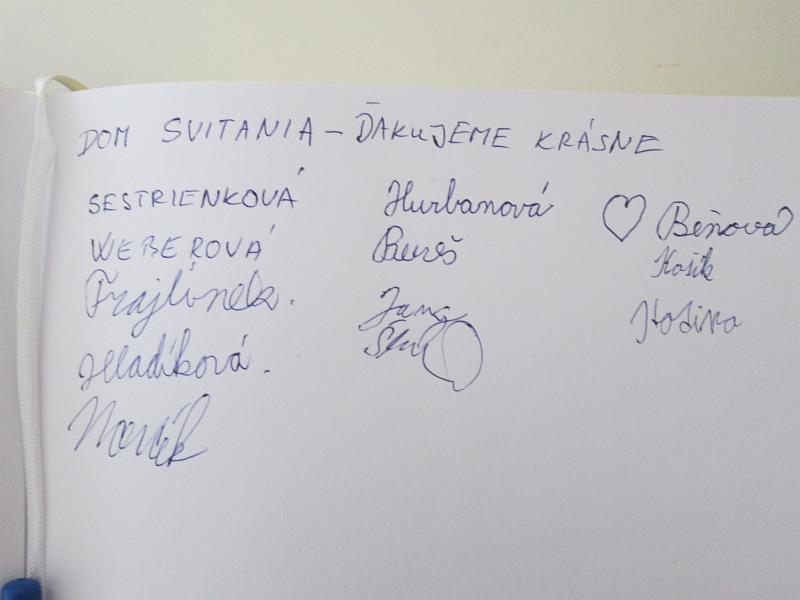 DOM SVITANIA – ĎAKUJEME KRÁSNE
SESTRIENKOVÁ
WEBEROVÁ
Frajlínek.
Hladíková.
Hurbanová
Bereš
Beňová
Košík